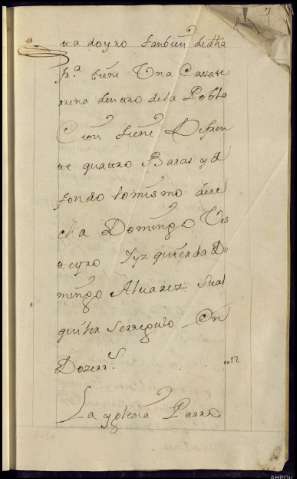 tra doyro tanbien dedha
Pa tiene Una Cassa te
rrena dentro dela Pobla
Cion tiene De fren
te quattro Baras y de
fondo lo mismo dere
cha Domingo
Yzquierda Do
mingo Alvarez Su al
quiler se rregulo En
Doze rrs
12
La yglesia Parro